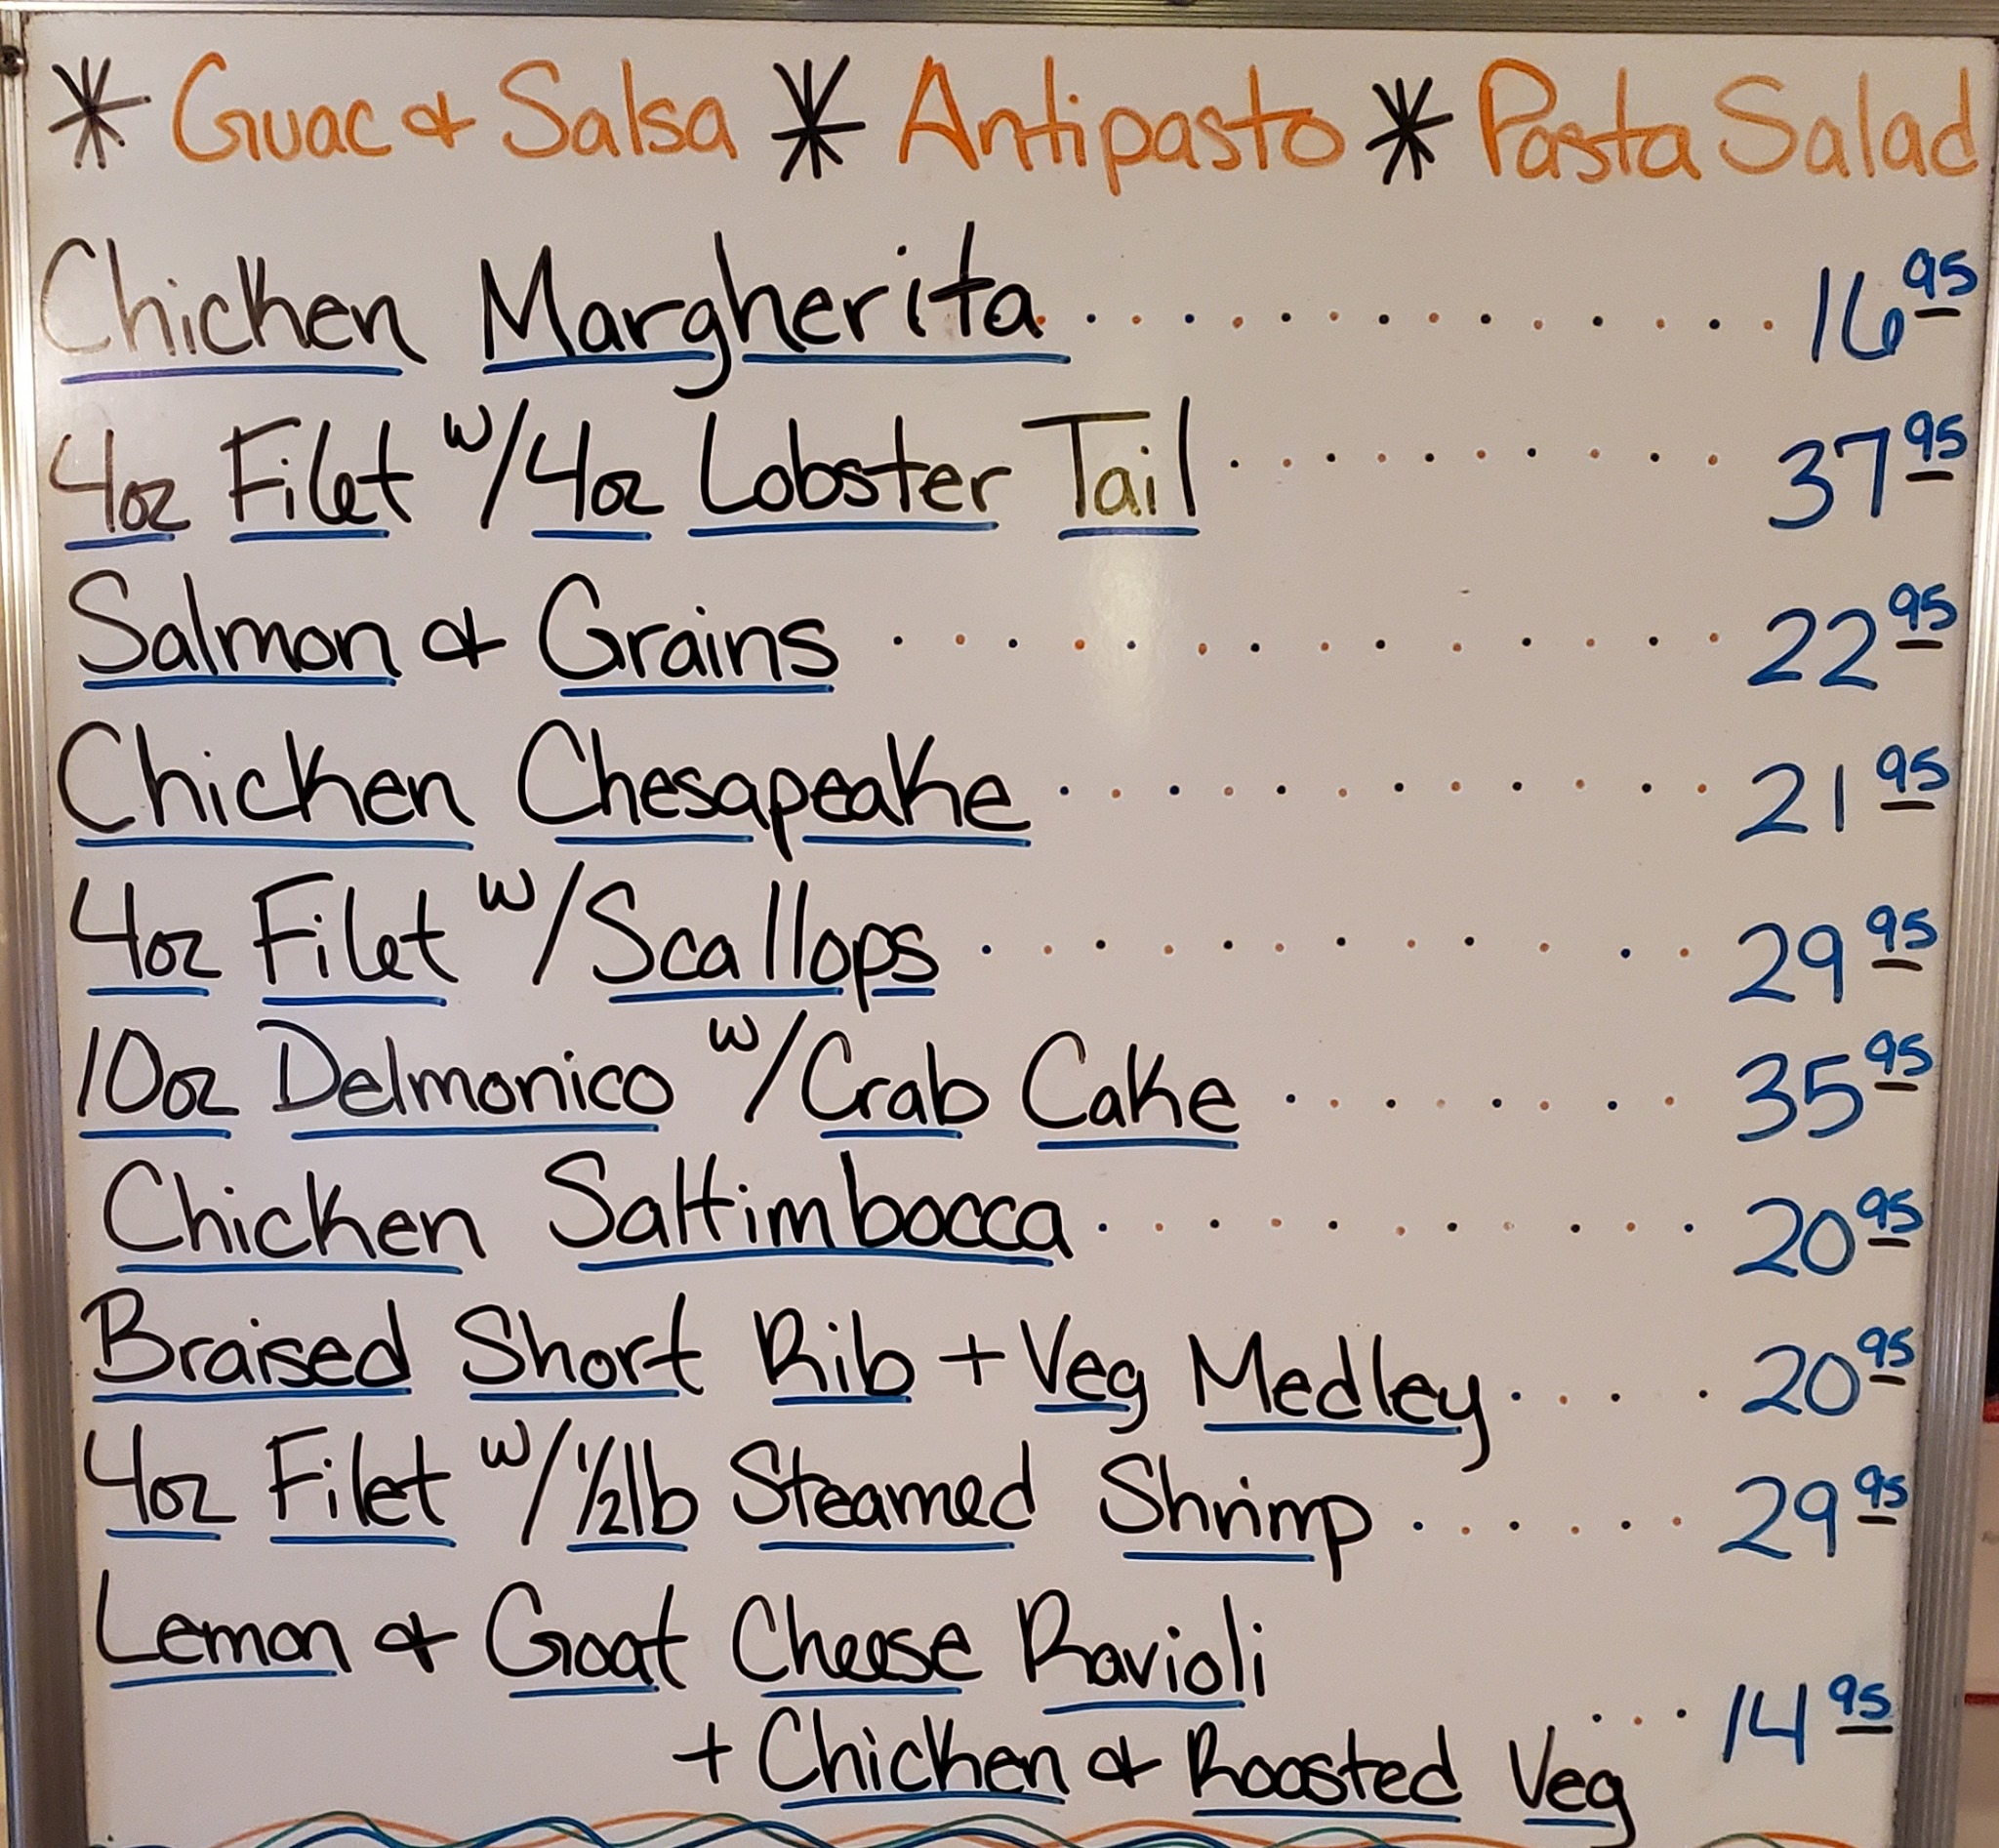 * Guac & Salsa * Antipasto * Pasta Salad
Chicken Margherita................ 16 95
4oz Filet w/4oz Lobster Tail........... 37 95
Salmon & Grains ............... 22 95
Chicken Chesapeake ............ 21 95
4oz Filet w/Scallops ............. 29 95
10oz Delmonico w/Crab Cake ........ 35 95
Chicken Saltimbocca............ 20 95
Braised Short Rib + Veg Medley.... 20 95
4oz Filet w/½lb Steamed Shrimp ...... 29 95
Lemon & Goat Cheese Ravioli
+ Chicken & Roasted Veg ... 14 95